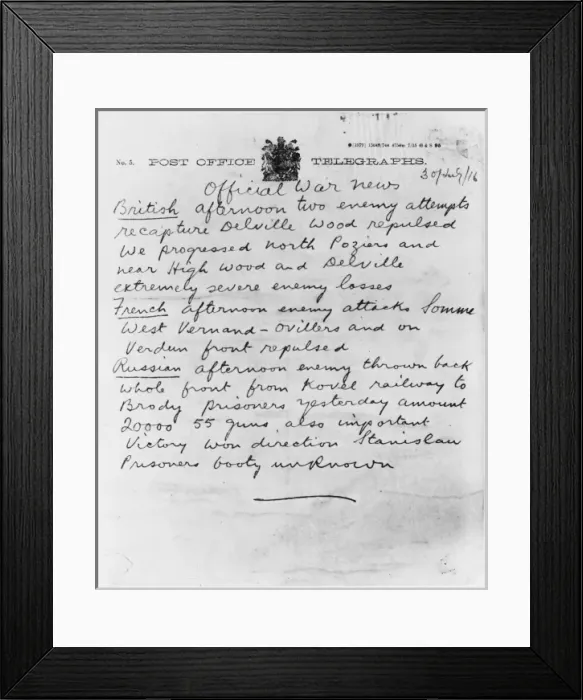 No. 5. POST OFFICE TELEGRAPHS.
30/July/16
Official War News
British afternoon two enemy attempts
recapture Delville Wood repulsed
We progressed north Poziers and
near High Wood and Delville
extremely severe enemy losses
French afternoon enemy attacks Somme
West Vermand - Ovillers and on
Verdun front repulsed
Russian afternoon enemy thrown back
whole front from Kovel railway to
Brody prisoners yesterday amount
20000 55 guns also important
Victory won direction Stanislau
Prisoners booty unknown